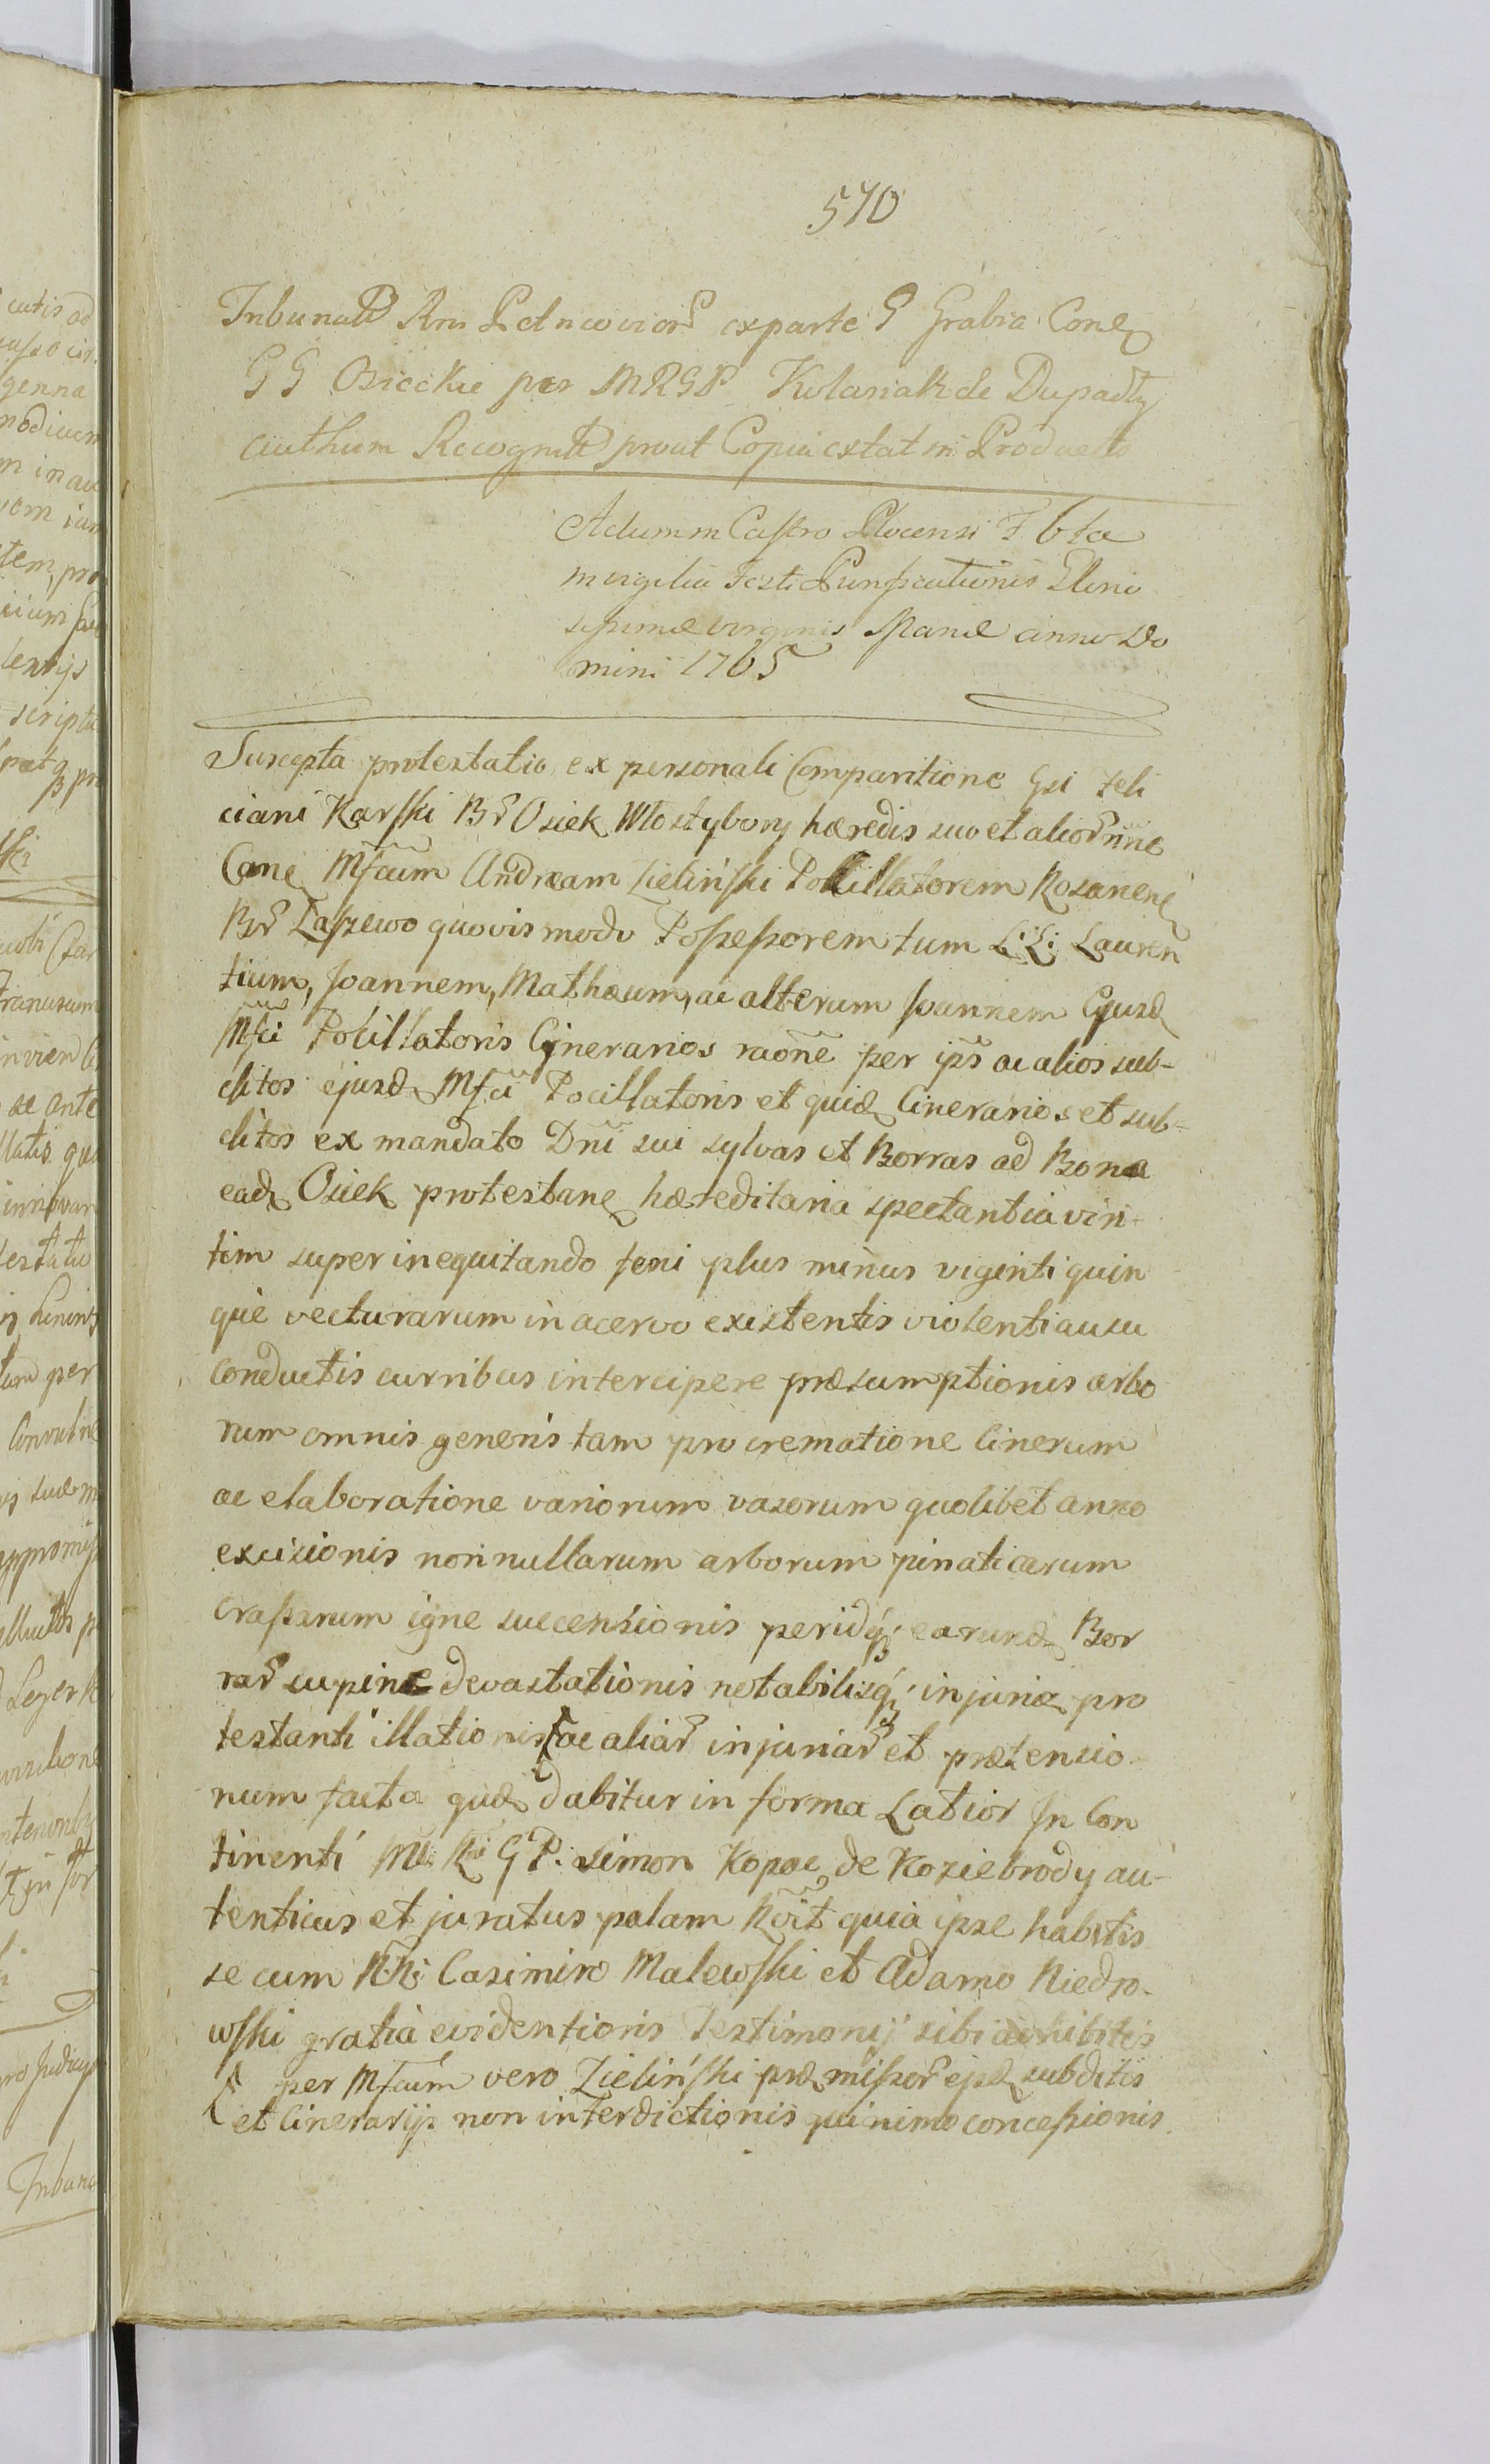 570
Tribunalt Rni exparte G Grabia Cone
G G Osieckie per MRGP Kolasiak de Dupadły
authum Recognitt prout Copia extat in Producto
Actum in Castro Plocensi F 6ta
in vigilia Festi Purificationis Glorio
sissimæ virginis Mariæ anno Do
mini 1765
Suscepta protestatio ex personali Comparitione Gsi Feli
ciani Karski Br Osiek Włostybory hæredis suo et alior nne
Cone Mfcum Andream Zieliński Pocillatorem Rosanene
Br Łaszewo quovis modo Possessorem tum L:L: Lauren
tium, Joannem, Mathæum, ac alterum Joannem Ejusd
Mfci Pocillatoris Cynerarios raone per ips ac alios sub-
ditos ejusd Mfci Pocillatoris et quid Cinerarios et sub-
ditos ex mandato Dni sui sylvas et Borras ad Bona
ead Osiek protestane hæreditaria spectantia vin-
tim super inequitando feni plus minus viginti quin
que vecturarum in acervo existentis violenti ausu
conductis curribus intercipere præsumptionis arbo
rum omnis generis tam pro crematione Cinerum
ac elaboratione variorum vasorum quolibet anno
excisionis nonnullarum arborum pinaticarum
crassarum igne succensionis peridq; earund Bor
rar supine devastationis notabilisq; injuriæ pro
testanti illationis ac aliar injuriar et prætensio-
num facta quæ dabitur in forma Latior In Con
tinenti Mi: Rni G P. Simon Kopac de Koziebrody au-
tenticus et juratus palam Roit quia ipse habitis
se cum NN: Casimiro Malewski et Adamo Niedro-
wski gratia evidentioris Testimonij sibi adhibitis
per Mfcum vero Zieliński præmissor ejsd subditis
et Cinerarijs non interdictionis quinimo concessionis